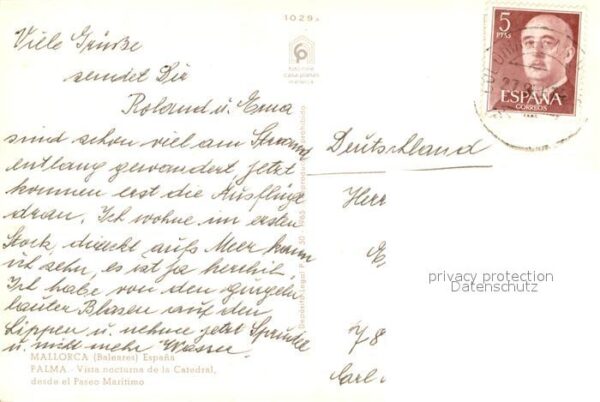 1029a
Viele Grüße
sendet Dir
Roland u. Erna
sind schon viel am Strand
entlang gewandert jetzt
kommen erst die Ausflüge
dran. Ich wohne im ersten
Stock, direkt aufs Meer kann
ich sehn, es ist ja herrlich.
Ich habe von den gurgeln
lauter Blasen auf den
Lippen u. nehme jetzt Sprudel
u. nicht mehr Wasser.
MALLORCA (Baleares) España
PALMA - Vista nocturna de la Catedral,
desde el Paseo Marítimo
casa planas
mallorca
Depósito Legal P. M. 30 1965
5
PTAS
ESPAÑA
CORREOS
Deutschland
Herr
78
Carl
privacy protection
Datenschutz